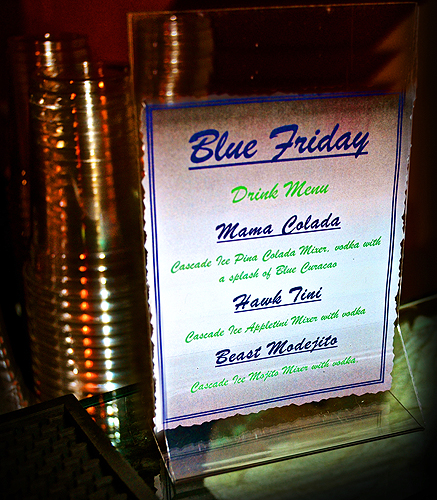 Blue Friday
Drink Menu
Mama Colada
Cascade Ice Pina Colada Mixer, vodka with
a splash of Blue Curacao
Hawk Tini
Cascade Ice Appletini Mixer with vodka
Beast Modejito
Cascade Ice Mojito Mixer with vodka.